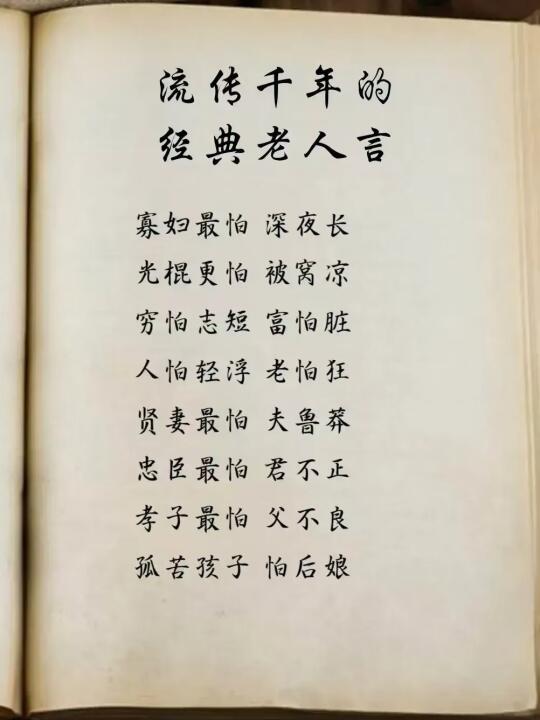 流传千年的
经典老人言
寡妇最怕 深夜长
光棍更怕 被窝凉
穷怕志短 富怕脏
人怕轻浮 老怕狂
贤妻最怕 夫鲁莽
忠臣最怕 君不正
孝子最怕 父不良
孤苦孩子 怕后娘